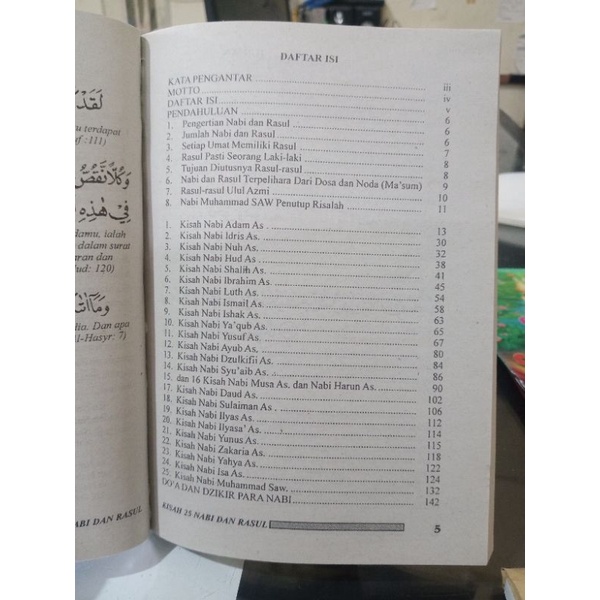 لَقَدْ
u terdapat
f :111)
وَكُلًّا نَقُصُّ
فِي هٰذِهِ
damu, ialah
dalam surat
ran dan
ud: 120)
وَمَآ اٰتٰ
lia. Dan apa
l-Hasyr: 7)
ABI DAN RASUL
DAFTAR ISI
KATA PENGANTAR iii
MOTTO iv
DAFTAR ISI v
PENDAHULUAN 6
1. Pengertian Nabi dan Rasul 6
2. Jumlah Nabi dan Rasul 6
3. Setiap Umat Memiliki Rasul 7
4. Rasul Pasti Seorang Laki-laki 8
5. Tujuan Diutusnya Rasul-rasul 8
6. Nabi dan Rasul Terpelihara Dari Dosa dan Noda (Ma'sum) 9
7. Rasul-rasul Ulul Azmi 10
8. Nabi Muhammad SAW Penutup Risalah 11
1. Kisah Nabi Adam As. 13
2. Kisah Nabi Idris As. 30
3. Kisah Nabi Nuh As. 32
4. Kisah Nabi Hud As. 38
5. Kisah Nabi Shalih As. 41
6. Kisah Nabi Ibrahim As. 45
7. Kisah Nabi Luth As. 54
8. Kisah Nabi Ismail As. 58
9. Kisah Nabi Ishak As. 63
10. Kisah Nabi Ya'qub As. 65
11. Kisah Nabi Yusuf As. 67
12. Kisah Nabi Ayub As. 80
13. Kisah Nabi Dzulkifli As. 84
14. Kisah Nabi Syu'aib As. 86
15. dan 16 Kisah Nabi Musa As. dan Nabi Harun As. 90
17. Kisah Nabi Daud As. 102
18. Kisah Nabi Sulaiman As . 106
19. Kisah Nabi Ilyas As. 112
20. Kisah Nabi Ilyasa' As. 114
21. Kisah Nabi Yunus As. 115
22. Kisah Nabi Zakaria As. 118
23. Kisah Nabi Yahya As. 122
24. Kisah Nabi Isa As. 124
25. Kisah Nabi Muhammad Saw. 132
DO'A DAN DZIKIR PARA NABI 142
KISAH 25 NABI DAN RASUL 5